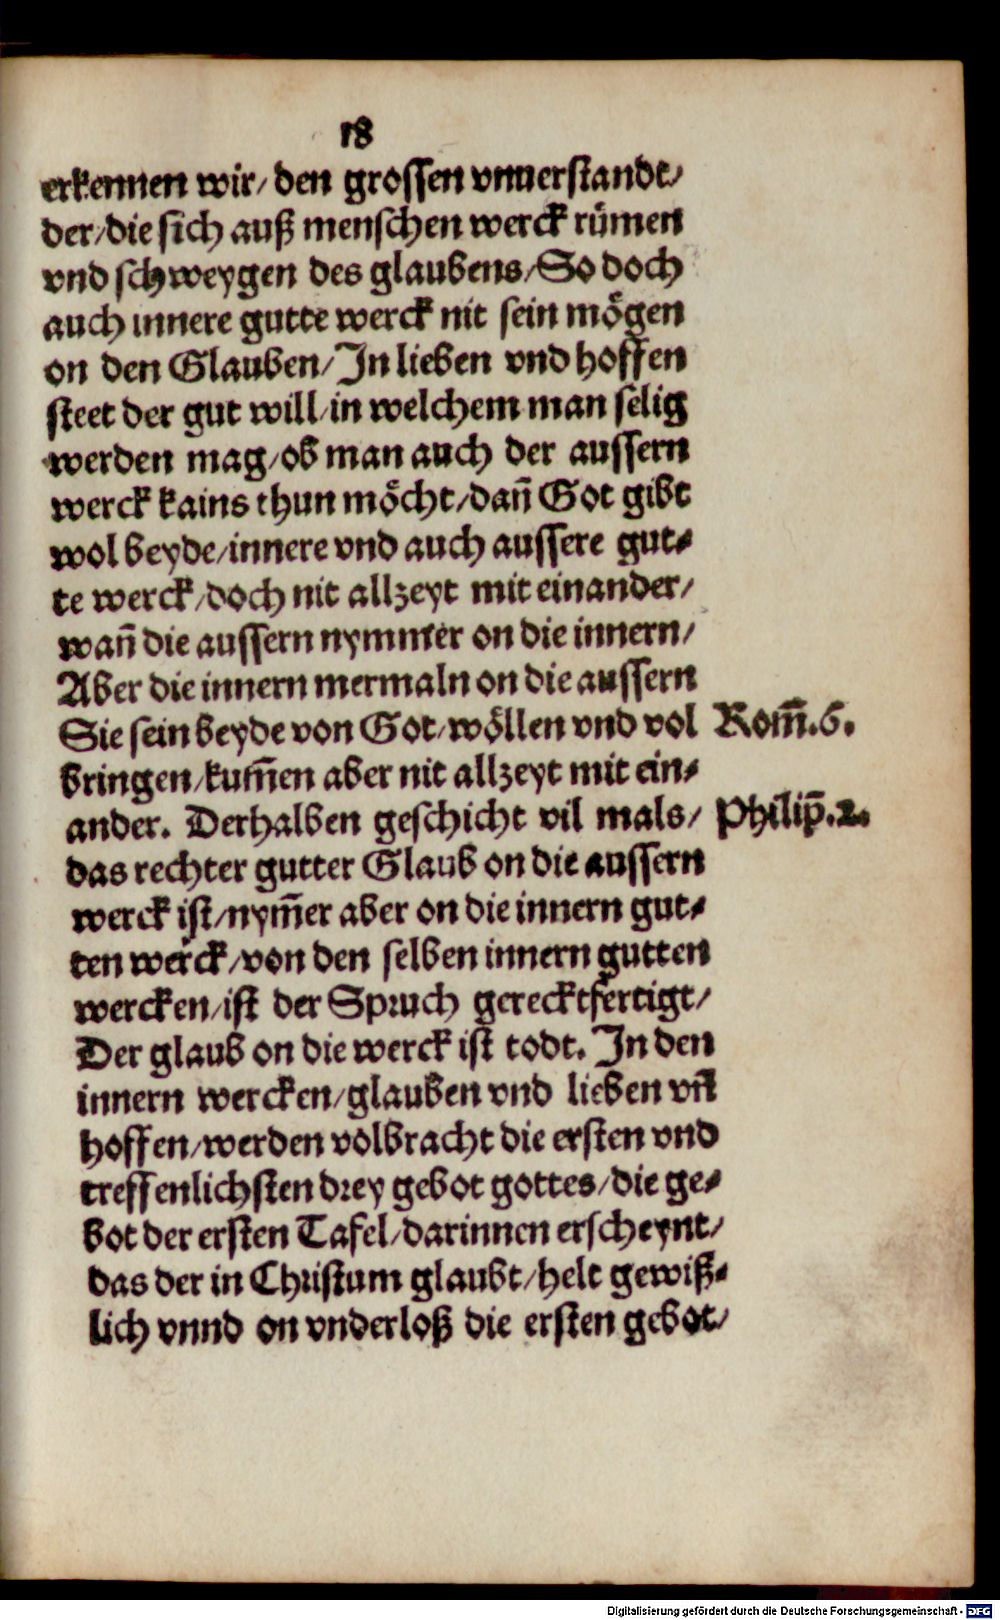 18
erkennen wir/ den grossen vnuerstandt/
der/ die sich auß menschen werck rümen
vnd schweygen des glaubens/ So doch
auch innere gutte werck nit sein mögen
on den Glauben/ In lieben vnd hoffen
steet der gut will/ in welchem man selig
werden mag/ ob man auch der aussern
werck kains thun möcht/ dañ Got gibt
wol beyde/ innere vnd auch aussere gut⸗
te werck/ doch nit allzeyt mit einander/
wañ die aussern nymmer on die innern/
Aber die innern mermaln on die aussern
Sie sein beyde von Got/ wöllen vnd vol Rom̃.6.
bringen/ kum̃en aber nit allzeyt mit ein⸗
ander. Derhalben geschicht vil mals/ Philip̃.2.
das rechter gutter Glaub on die aussern
werck ist/ nym̃er aber on die innern gut⸗
ten werck/ von den selben innern gutten
wercken/ ist der Spruch gerecktfertigt/
Der glaub on die werck ist todt. In den
innern wercken/ glauben vnd lieben vñ
hoffen/ werden volbracht die ersten vnd
treffenlichsten drey gebot gottes/ die ge⸗
bot der ersten Tafel/ darinnen erscheynt/
das der in Christum glaubt/ helt gewiß⸗
lich vnnd on vnderloß die ersten gebot/
Digitalisierung gefördert durch die Deutsche Forschungsgemeinschaft - DFG